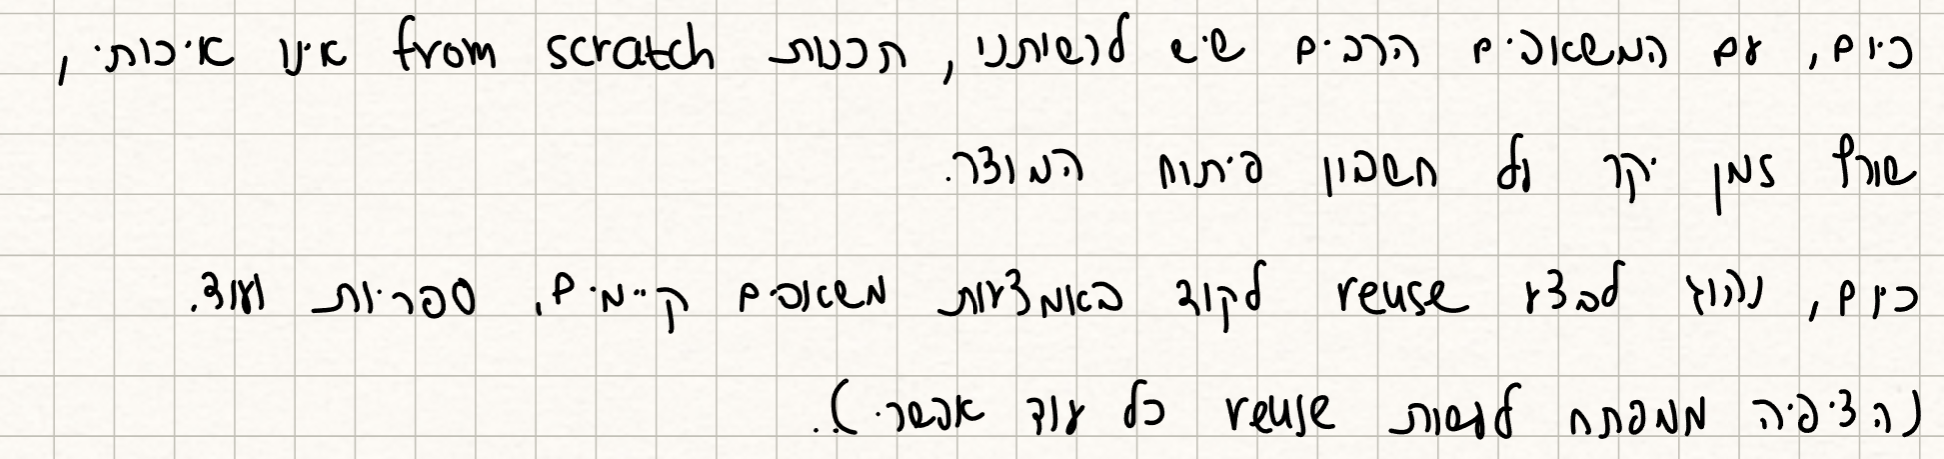 כיום, עם המשאבים הרבים שיש לרשותנו, תכנות from scratch אינו איכותי,
שורף זמן יקר ועל חשבון פיתוח המוצר.
כיום, נהוג לבצע reuse לקוד באמצעות משאבים קיימים, ספריות ועוד.
(הציפיה ממפתח לעשות reuse כל עוד אפשר.).